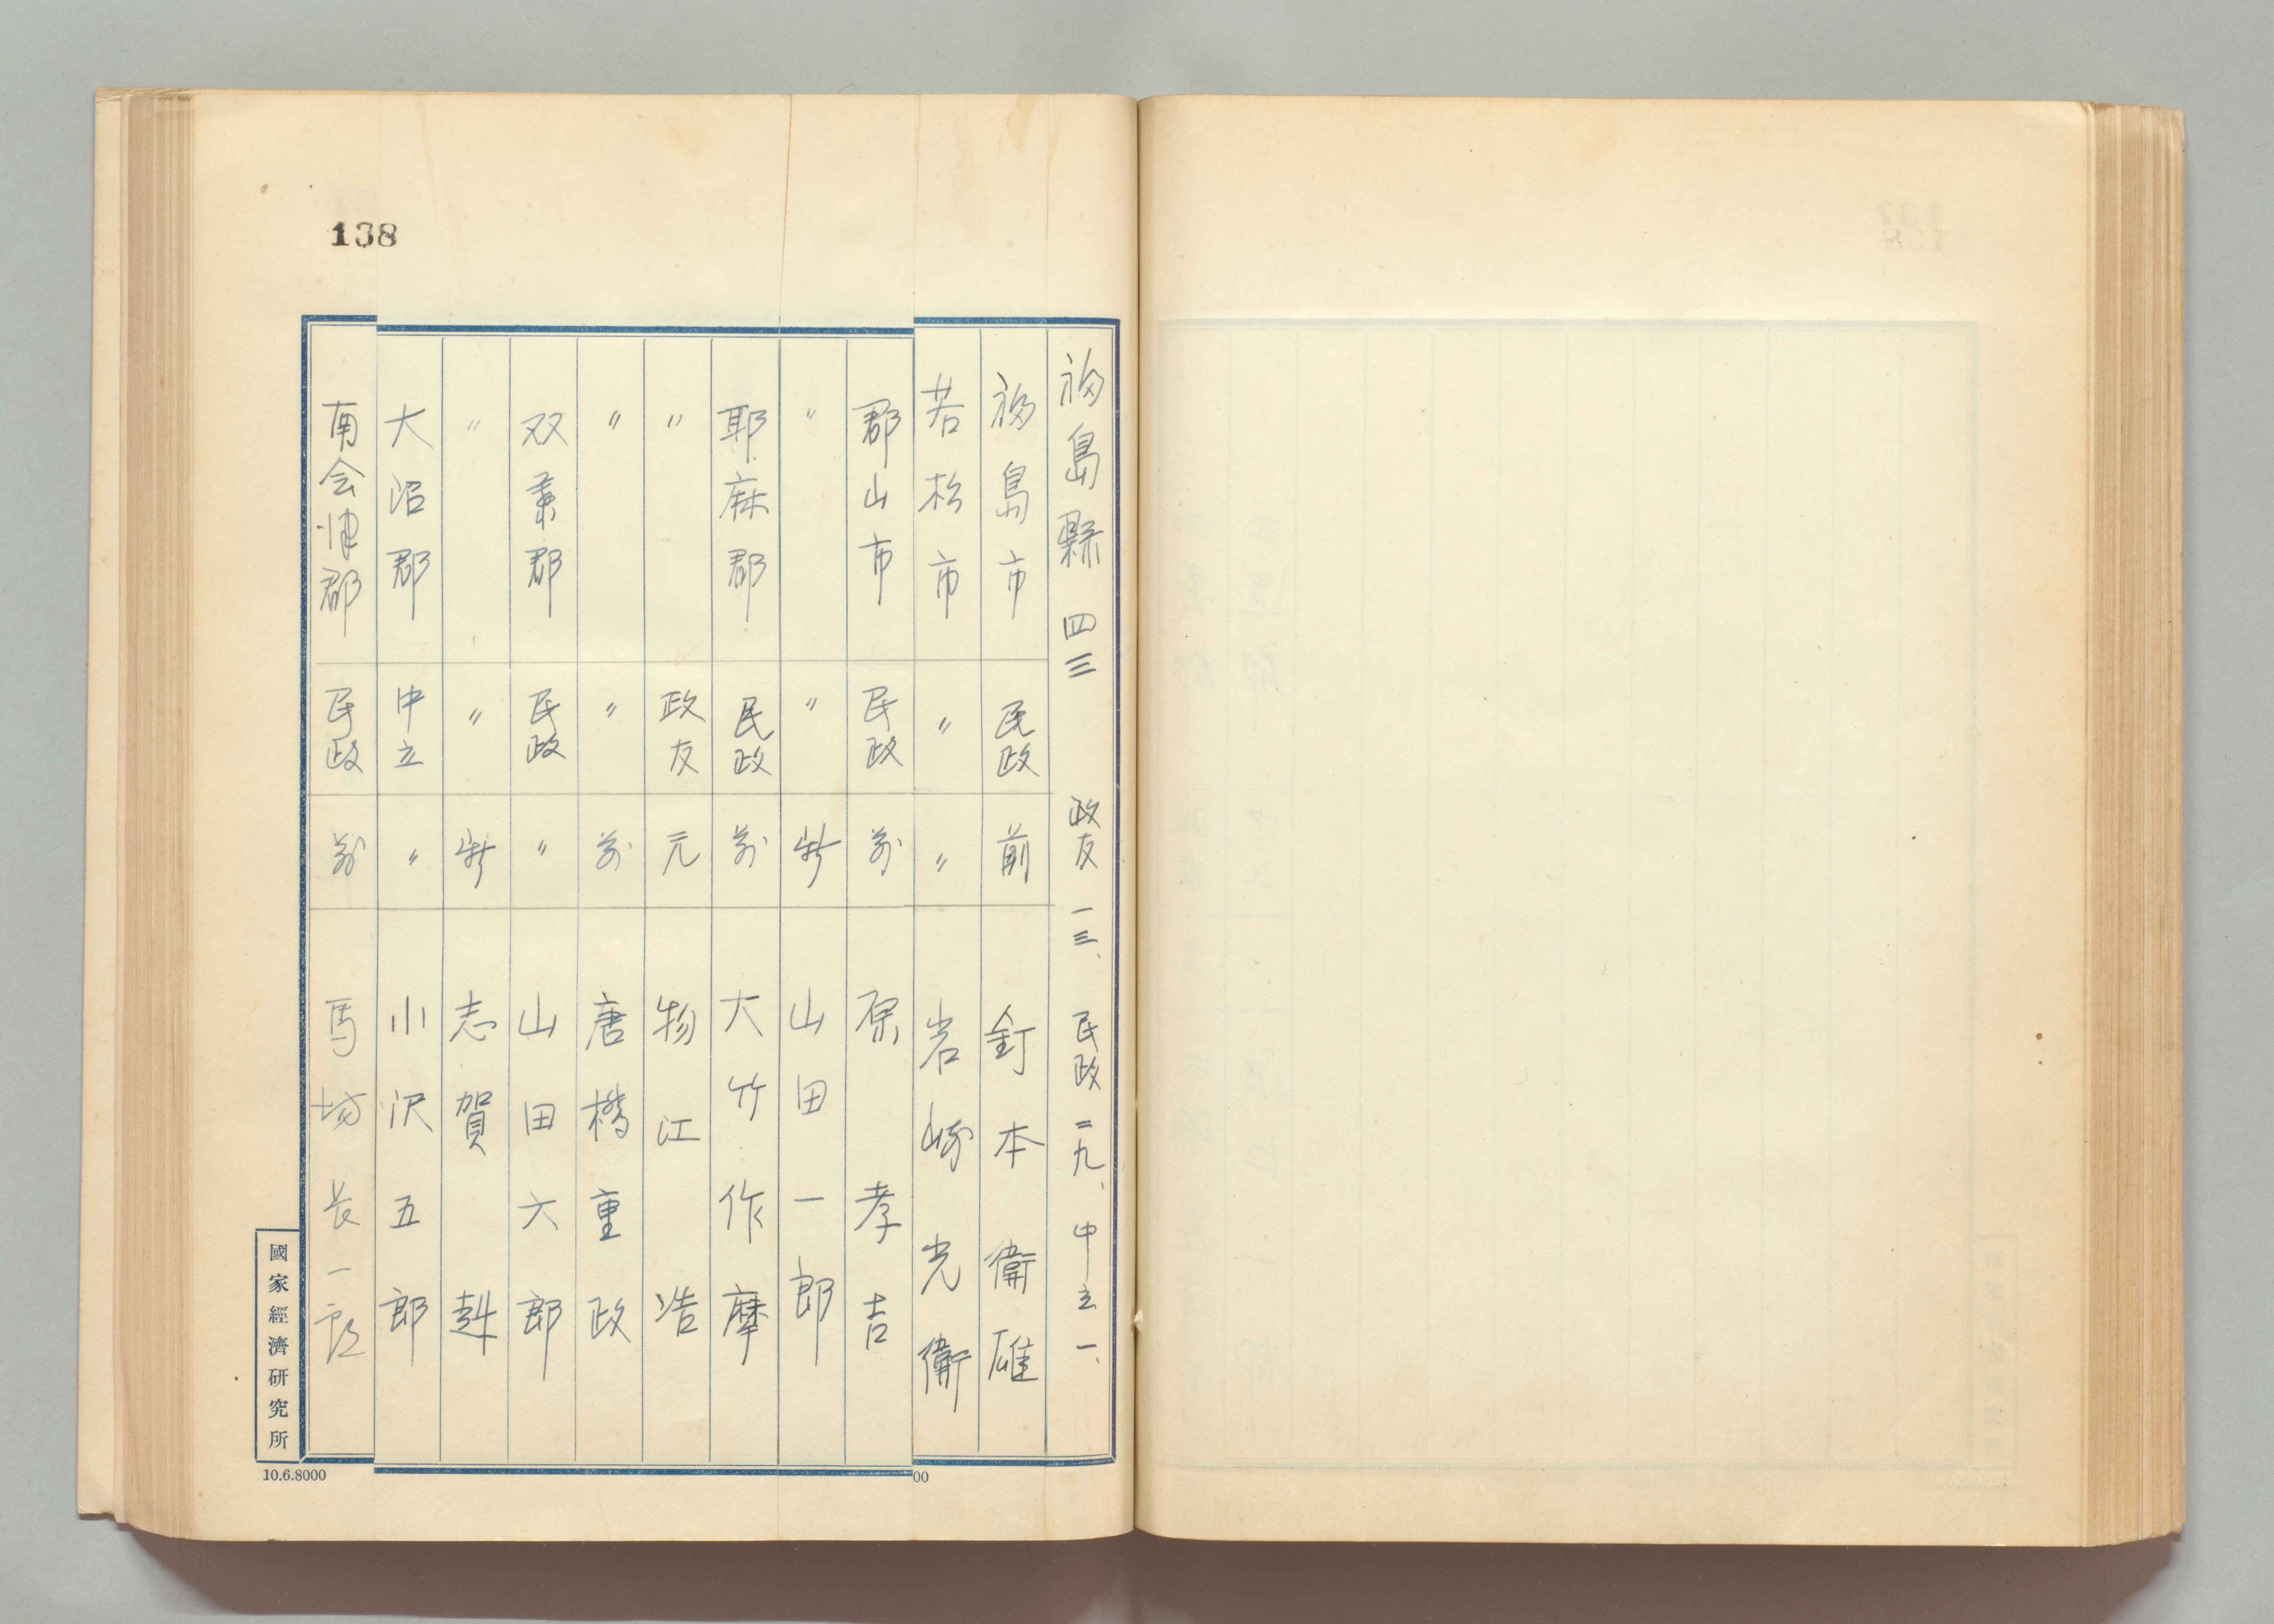 138
福島縣 四三 政友 一三、 民政 二九、 中立 一、
福島市 民政 前 釘本衛雄
若松市 〃 〃 岩崎光衛
郡山市 民政 前 原孝吉
〃 〃 新 山田一郎
耶麻郡 民政 前 大竹作摩
〃 政友 元 物江浩
〃 〃 前 唐橋重政
双葉郡 民政 〃 山田六郎
〃 〃 新 志賀
大沼郡 中立 〃 小沢五郎
南会津郡 民政 前 馬場長一郎
國家經濟研究所
10.6.8000
00